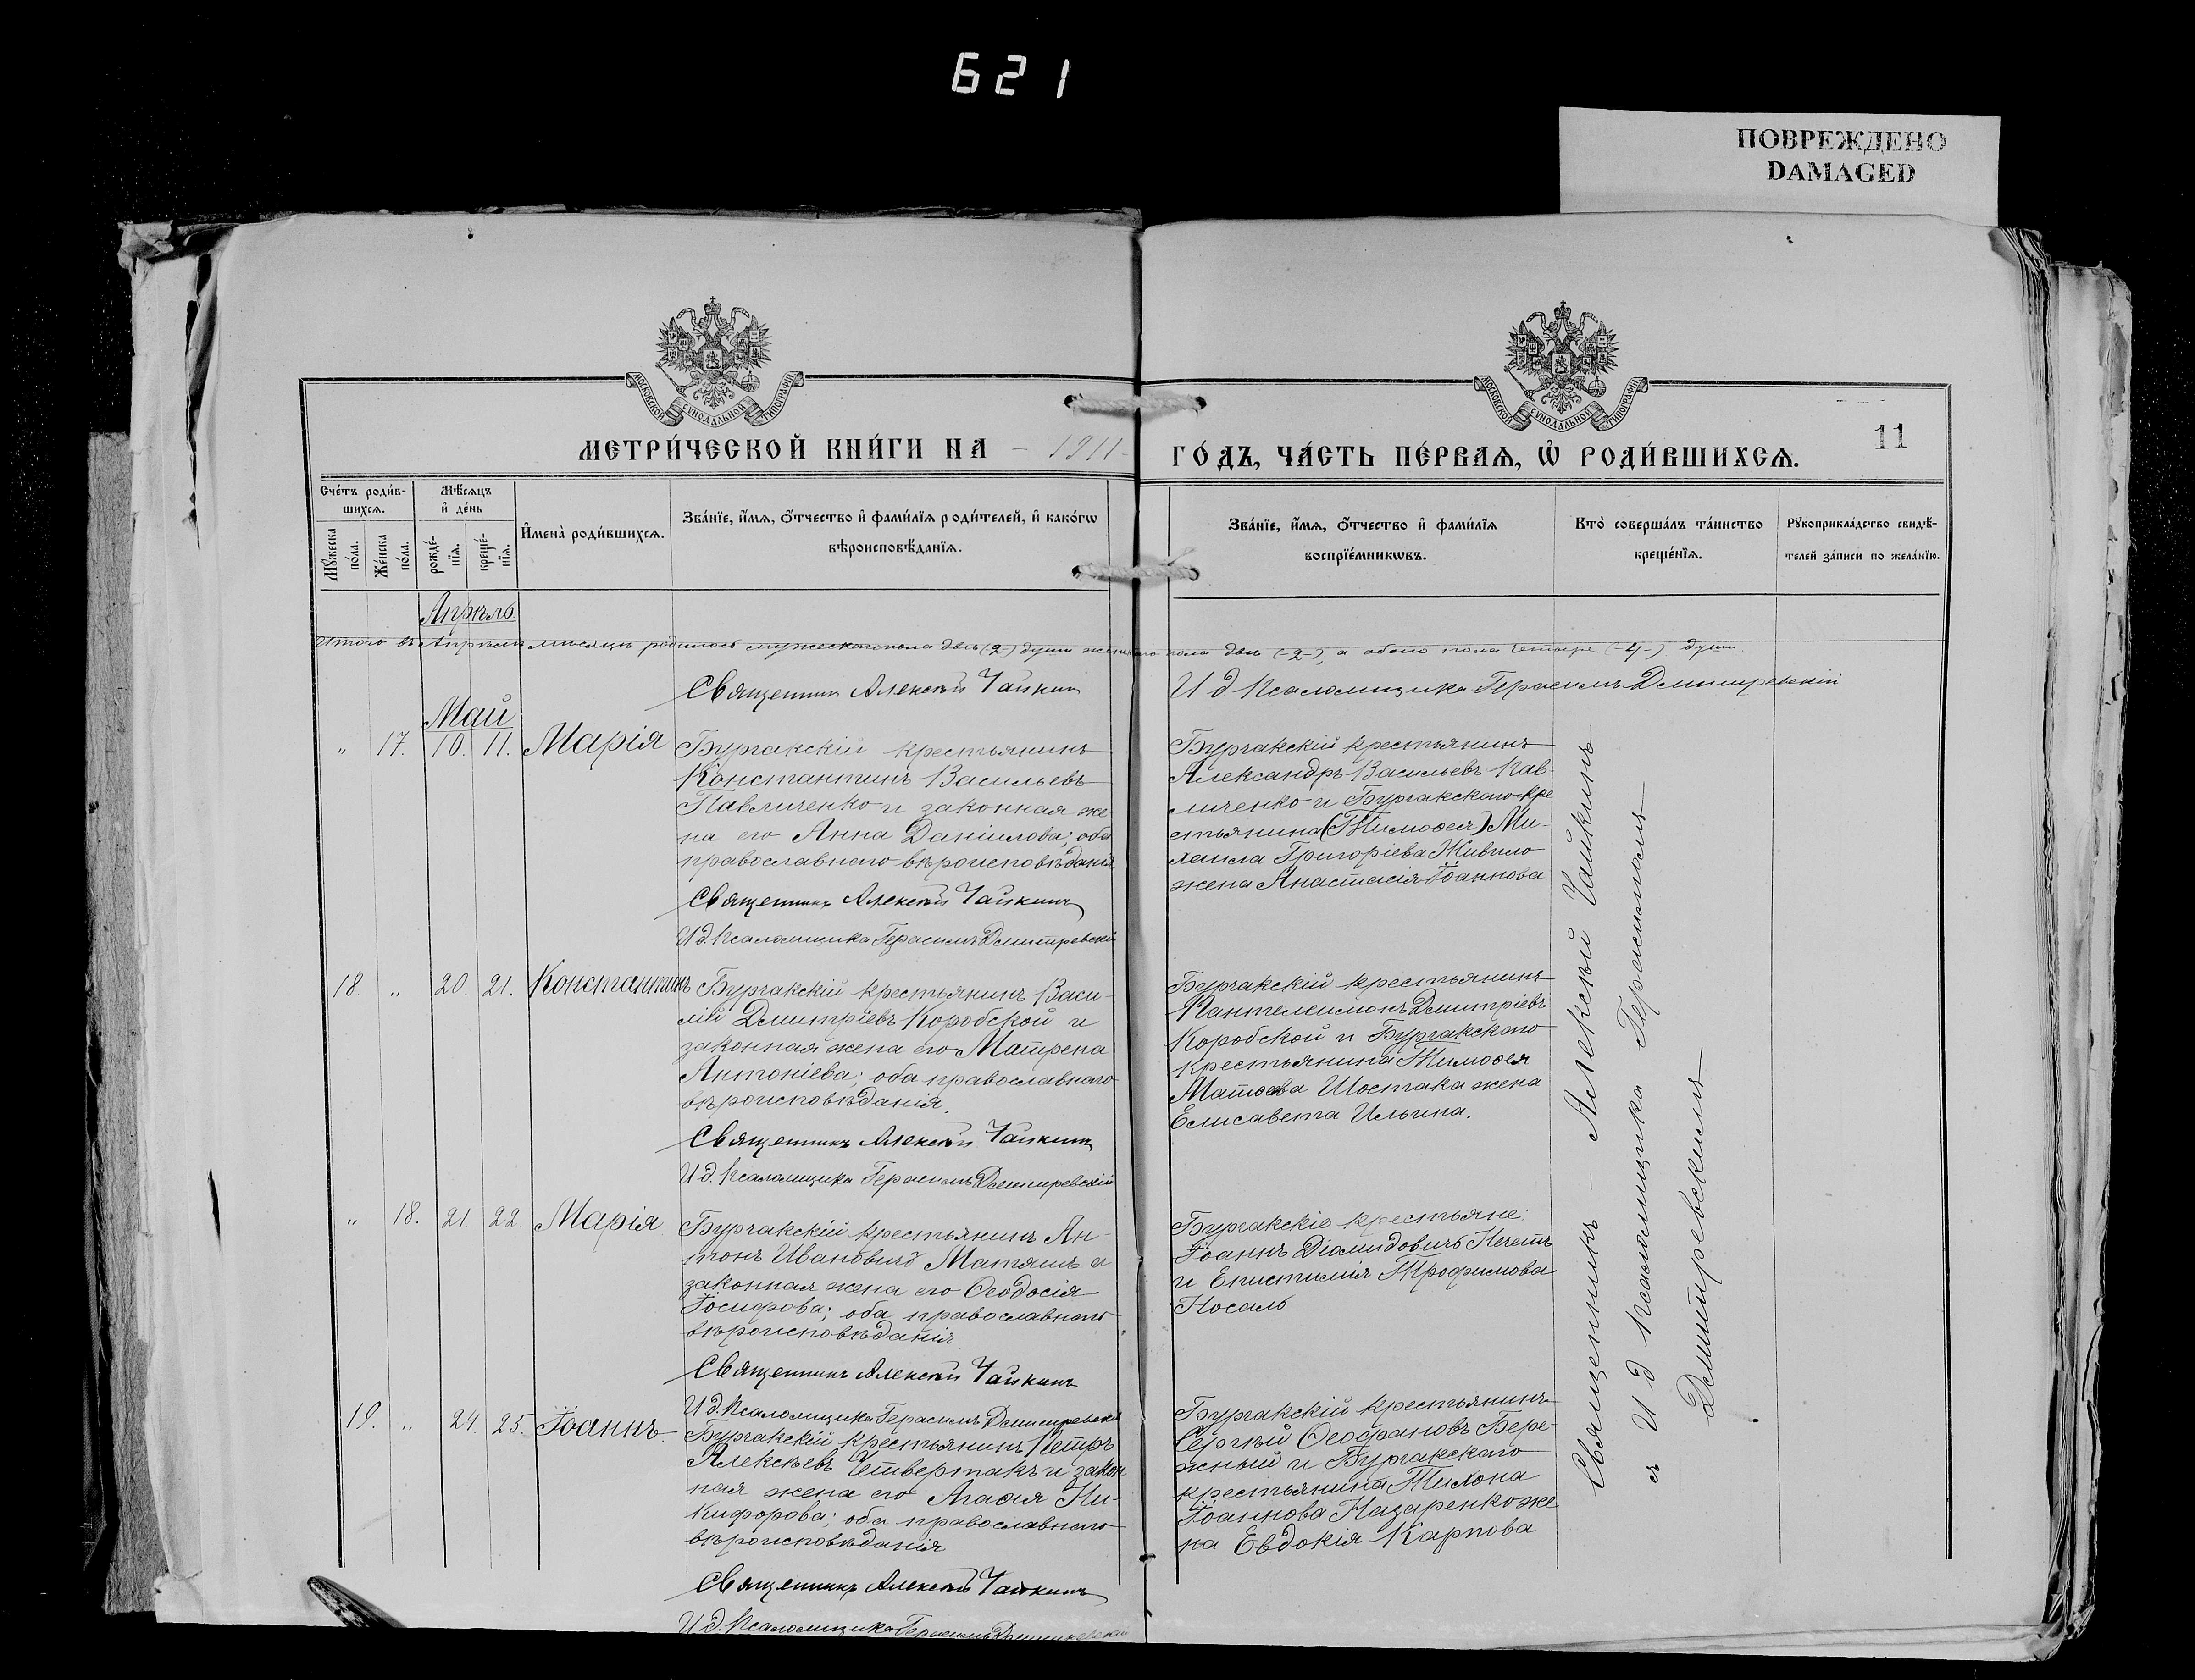 621
ПОВРЕЖДЕНО
DAMAGED
МОСКОВСКОЙ СУНОДАЛЬНОЙ ТИПОГРАФІИ
МОСКОВСКОЙ СУНОДАЛЬНОЙ ТИПОГРАФІИ
МЕТРИ́ЧЕСКОЙ КНИ́ГИ НА – 1911 –
ГО́ДЪ, ЧА́СТЬ ПЕ́РВАѦ, Ѡ҆ РОДИ́ВШИХСѦ.
11
Сче́тъ роди́в-
шихсѧ.
Мѣ́сѧцъ
и҆ де́нь
Мꙋ́жеска
по́ла.
Же́нска
по́ла.
рожде́-
нїѧ.
креще́-
нїѧ.
И҆мена̀ роди́вшихсѧ.
Зва́нїе, и҆́мѧ, ѻ҆́тчество и҆ фами́лїѧ роди́телей, и҆ како́гѡ
вѣроисповѣ́данїѧ.
Зва́нїе, и҆́мѧ, ѻ҆́тчество и҆ фами́лїѧ
воспрїе́мникѡвъ.
Кто̀ соверша́лъ та́инство
креще́нїѧ.
Рꙋкоприкла́дство свидѣ́-
телей за́писи по жела́нїю.
Апрѣль
Итого въ Апрѣлѣ мѣсяцѣ родилось мужескаго пола двѣ (-2-) души женскаго пола двѣ (-2-), а обоего пола четыре (-4-) души
Священникъ Алексѣй Чайкинъ
И д. Псаломщика Герасимъ Дмитревскій
Май
„ 17. 10. 11. Марія
Бургакскій крестьянинъ
Константинъ Васильевъ
Павличенко и законная же
на его Анна Даніилова; оба
православнаго вѣроисповѣданія
Священникъ Алексѣй Чайкинъ
И д. Псаломщика Герасимъ Дмитревскій
Бургакскій крестьянинъ
Александръ Васильевъ Пав-
личенко и Бургакскаго кре
стьянина (Тимоѳея) Ми-
хаила Григоріева Живило
жена Анастасія Іоаннова
18. „ 20. 21. Константинъ
Бургакскій крестьянинъ Васи-
лій Дмитріевъ Коробской и
законная жена его Матрена
Антоніева; оба православнаго
вѣроисповѣданія.
Священникъ Алексѣй Чайкинъ
И д. Псаломщика Герасимъ Дмитревскій
Бургакскій крестьянинъ
Пантелеимонъ Дмитріевъ
Коробской и Бургакскаго
крестьянина Тимоѳея
Матѳева Шостака жена
Елисавета Ильина.
„ 18. 21. 22. Марія
Бургакскій крестьянинъ Ан-
тонъ Ивановичъ Матяшъ и
законная жена его Ѳеодосія
Іосифова; оба православнаго
вѣроисповѣданія
Священникъ Алексѣй Чайкинъ
И д. Псаломщика Герасимъ Дмитревскій
Бургакскіе крестьяне:
Іоаннъ Діомидовичъ
и Епистимія Трофимова
Носаль
19. „ 24. 25. Іоаннъ
Бургакскій крестьянинъ Петръ
Алексѣевъ Четвертакъ и закон
ная жена его Агаѳія Ни-
кифорова; оба православнаго
вѣроисповѣданія
Священникъ Алексѣй Чайкинъ
И д. Псаломщика Герасимъ Дмитревскій
Бургакскій крестьянинъ
Сергѣй Ѳеофановъ Бере-
жный и Бургакскаго
крестьянина Тихона
Іоаннова Назаренко же
на Евдокія Карпова
Священникъ – Алексѣй Чайкинъ
съ И д Псаломщика Герасимомъ
Дмитревскимъ